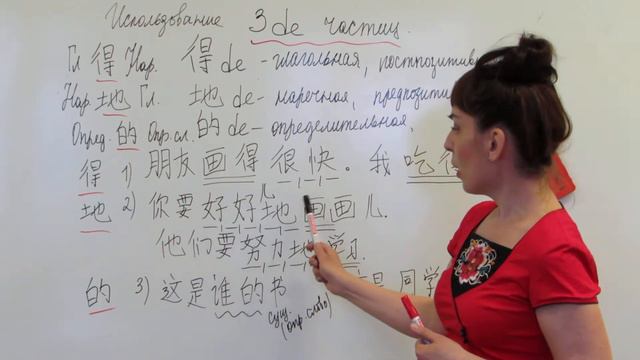 Использование 3 de частиц.
Гл 得 Нар. 得 de - глагольная, постпозитив
Нар. 地 Гл. 地 de - наречная, предпозити
Опред. 的 Опр.сл. 的 de - определительная,
得 1) 朋友画得很快。我吃得
地 2) 你要好好儿地画画儿.
他们要努力地学习.
的 3) 这是谁的书 是同学
сущ.
(опр. слово)